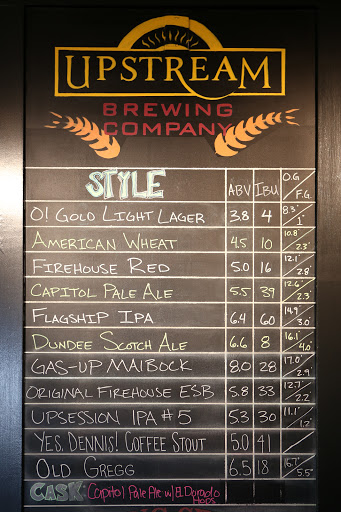 UPSTREAM
BREWING
COMPANY
STYLE ABV IBU O.G / F.G.
O! GOLD LIGHT LAGER 3.8 4 8.3° / 1°
AMERICAN WHEAT 4.5 10 10.8 / 2.3°
FIREHOUSE RED 5.0 16 12.1° / 2.8°
CAPITOL PALE ALE 5.5 39 12.6° / 2.3°
FLAGSHIP IPA 6.4 60 14.9 / 3.0°
DUNDEE SCOTCH ALE 6.6 8 16.1° / 4.0°
GAS-UP MAIBOCK 8.0 28 17.0° / 2.9°
ORIGINAL FIREHOUSE ESB 5.8 33 12.7° / 2.2°
UPSESSION IPA #5 5.3 30 11.1° / 1.2°
YES, DENNIS! COFFEE STOUT 5.0 41 /
OLD GREGG 6.5 18 16.7° / 5.5°
CASK: Capitol Pale Ale w/ El Dorado
Hops